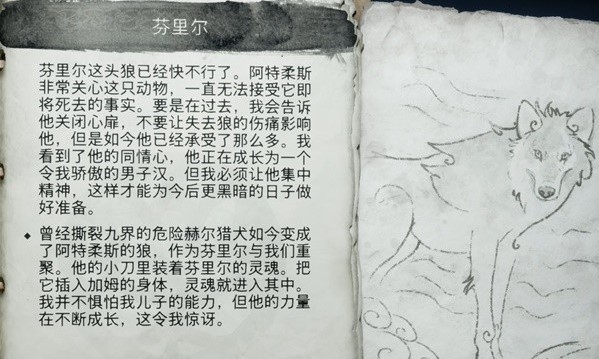 芬里尔
芬里尔这头狼已经快不行了。阿特柔斯
非常关心这只动物，一直无法接受它即
将死去的事实。要是在过去，我会告诉
他关闭心扉，不要让失去狼的伤痛影响
他，但是如今他已经承受了那么多。我
看到了他的同情心，他正在成长为一个
令我骄傲的男子汉。但我必须让他集中
精神，这样才能为今后更黑暗的日子做
好准备。
◆ 曾经撕裂九界的危险赫尔猎犬如今变成
了阿特柔斯的狼，作为芬里尔与我们重
聚。他的小刀里装着芬里尔的灵魂。把
它插入加姆的身体，灵魂就进入其中。
我并不惧怕我儿子的能力，但他的力量
在不断成长，这令我惊讶。